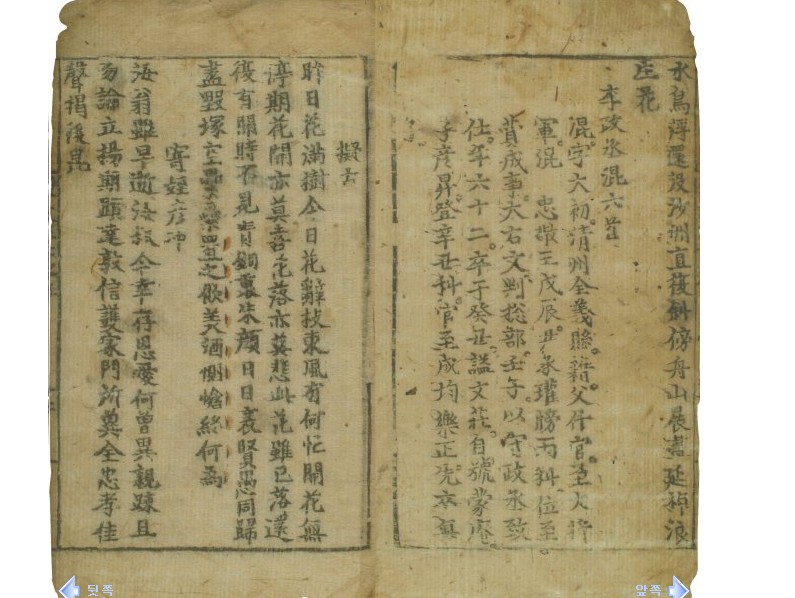 水鳥浮還沒沙洲直復斜傍舟山展畵延棹浪
花
李政丞混六首
混字大初清州全義縣籍父仟官至大將
軍混 忠王戊辰牓丙科位至
贊成事大右文判捴部壬午以守政丞致
仕年六十二卒于癸丑謚文莊自號蒙庵
子彦昇登辛丑科官至成均樂正先卒無
擬古
昨日花滿樹今日花辭枝東風有何忙開花無
停期花開亦莫喜花落亦莫悲此花雖已落還
復有開時不見青銅裏朱顔日日衰賢愚同歸
盡毁塚纍置之飲美酒惻愴終何為
寄姪彦冲
海翁雖早逝汝叔今幸存恩愛何曾異親踈且
勿論立揚期顯達敦信護家門所兾全忠孝佳
聲揭後昆
뒷쪽
앞쪽